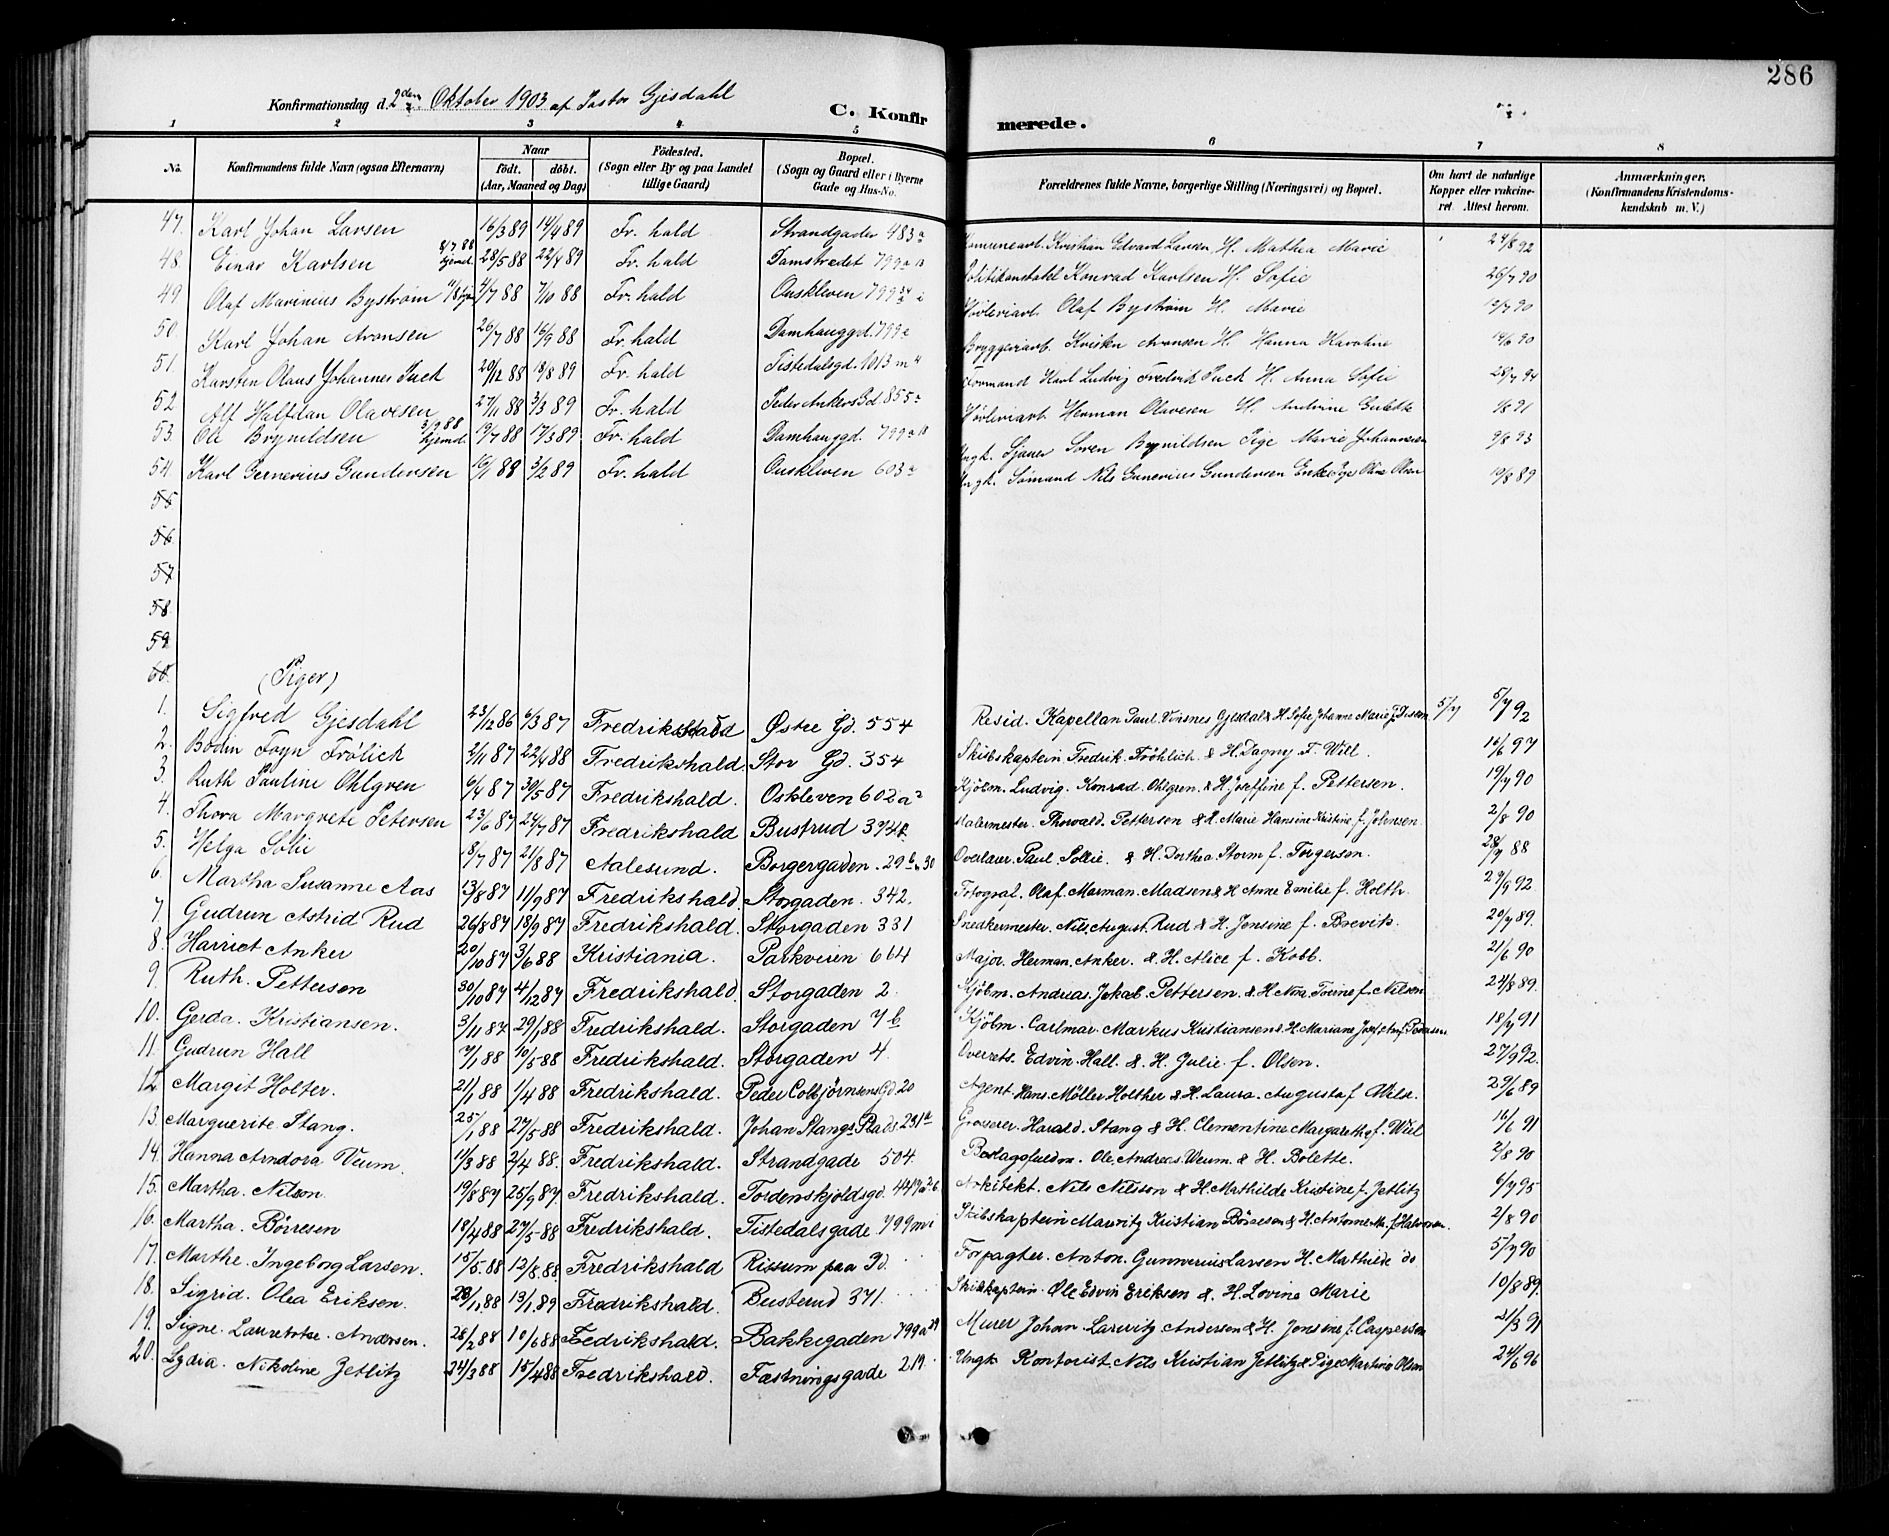 286
Konfirmationsdag d. 2den Oktober 1903 af Pastor Gjesdahl
C. Konfirmerede.
1 2 3 4 5 6 7 8
No. Konfirmandens fulde Navn (ogsaa Efternavn) Naar født. døbt. (Aar, Maaned og Dag) Fødested. (Sogn eller By og paa Landet tillige Gaard) Bopæl. (Sogn og Gaard eller i Byerne Gade og Hus-No. Forældrenes fulde Navne, borgerlige Stilling (Næringsvei) og Bopæl. Om havt de naturlige Kopper eller vakcineret. Attest herom. Anmærkninger. (Konfirmandens Kristendomskundskab m. V.)
47. Karl Johan Larsen 16/3 89 14/4 89 Fr. hald Strandgaden 483a Komunearb. Kristian Edvard Larsen H. Mathea Marie 24/8 92
48. Einar Karlsen 8/7 88 hjemd. 28/5 88 22/4 89 Fr. hald Damstrædet 799a Politikonstabel Konrad Karlsen H. Sofie 26/7 90
49 Olaf Marinius Bystrøm 4/7 88 7/10 88 Fr. hald Ouskleven 799 Høvleriarb. Olaf Bystrøm H. Marie 12/7 90
50. Karl Johan Aronsen 26/7 88 16/9 88 Fr. hald Damhauggd. 799a Bryggeriarb. Kristen Aronsen H. Hanna Karoline 14/6 90
51. Karsten Olaus Johannes Puck 20/12 88 18/8 89 Fr. hald Tistedalsgd. 1013 m 4 Formand Karl Ludvig Fredrik Puck H. Anna Sofie 28/7 94
52 Alf Halfdan Olavesen 27/11 88 3/3 89 Fr. hald Peder Ankers Gd 855a Høvleriarb. Herman Olavesen H. Andrine Gulette 1/8 91
53. Ole Brynildsen 3/9 88 hjemd. 19/7 88 17/3 89 Fr. hald Damhauggd. 799a Ungk. Sjauer Soren Brynildsen Pige Marie Johannesen 9/8 93
54 Karl Gernerius Gundersen 10/1 88 3/2 89 Fr. hald Ouskleven 603a Ungk. Sømand Nils Gunerius Gundersen Enke Pige Oline Olsen 10/8 89
55
56
57
58
59
60. (Piger)
1. Sigfred Gjesdahl 23/12 86 6/3 87 Fredrikshald Østre Gd. 554 Resid. Kapellan Paul Vinsnes Gjesdal & H. Sofie Johanne Marie f. 5/7 5/7 92
2. Bodin Foyn Frølich 2/11 87 22/4 88 Fredrikshald. Stor Gd. 354 Skibskaptein Fredrik Frøhlich & H. Dagny F. Will. 16/6 97
3. Ruth Pauline Ohlgren 6/4 87 30/5 87 Fredrikshald. Oskleven 602 a2 Kjøbm. Ludvig. Konrad. Ohlgren. & H. Joseffine f. Pettersen. 19/7 90
4. Thora Margrete Petersen 23/6 87 24/7 87 Fredrikshald Bustrud 394 Malermester. Thorvald. Pettersen & H. Marie Hansine Kristine f. Johnsen. 2/8 90
5. Helga Solie 18/7 87 21/8 87 Aalesund. Borgergaden. 29 b 30 Overlærer. Paul Sollie. & H. Dorthea. Storm f. Torgersen. 28/7 88
6. Martha Susanne Aas 13/8 87 11/9 87 Fredrikshald. Storgaden. 342. Fotograf. Olaf. Marman. Madsen & H Anne Emilie f. Holth. 24/9 92.
7. Gudrun Astrid Rud 26/8 87 18/9 87 Fredrikshald. Storgaden 331 Snedkermester. Nils, August. Rud & H. Jensine f. Brevik. 20/7 89.
8. Harriet Anker 20/10 87 3/6 88 Kristiania. Parkveien 664 Major. Herman. Anker. & H. Alice f. Kobb. 21/6 90
9. Ruth. Pettersen 30/10 87 4/12 87 Fredrikshald. Storgaden 2. Kjøbm. Andreas. Jakob. Pettersen. & H Nora Torine f. Nilsen 24/8 89.
10. Gerda. Kristiansen. 3/11 87 29/1 88 Fredrikshald. Storgaden 7 b Kjøbm. Carlmar. Markus Kristiansen & H. Mariane f. Pedersen 18/7 91
11. Gudrun Hall 7/1 88 10/5 88 Fredrikshald. Storgaden 4. Overrets. Edvin. Hall. & H. Julie. f. Olsen. 27/9 92.
12 Margit Holter. 21/1 88 1/4 88 Fredrikshald. Peder Colbjørnsens Gd. 20 Agent. Hans. Møller Holther & H. Laura. Augusta f Wilse. 29/6 89
13. Marguerite. Stang. 25/1 88 27/5 88 Fredrikshald. Johan Stangs Plads. 231a Grosserer. Harald. Stang & H. Clementine Margarethe f. Wiel 16/6 91
14. Hanna Arndora Veum. 11/3 88 2/4 88. Fredrikshald. Strandgade 504. Beslagsfuldm. Ole, Andreas. Weum. & H. Bolette. 2/8 90
15. Martha. Nilson 19/8 87 25/9 87. Fredrikshald. Tordenskjoldsgd. 447 Arkitekt. Nils Nilsson & H. Mathilde Kristine f. Jetlitz 6/7 95
16. Martha. Børresen 18/4 88 27/5 88 Fredrikshald. Tistedalsgade 799 m i Skibskaptein Mauritz Kristian Børresen & H. Antonne M. f. Halvorsen. 2/8 90
17. Marthe. Ingeborg Larsen. 15/5 88 12/8 88 Fredrikshald Rissum paa Id. Forpagter. Anton. Gunnerius Larsen H. Mathilde do 5/7 90
18. Sigrid. Olea Eriksen. 28/11 88 13/1 89 Fredrikshald. Busterud 371. Skibskaptein. Ole Edvin Eriksen & H. Lovine Marie 10/8 89.
19. Signe. Laurentse. Andersen. 28/2 88 10/6 88 Fredrikshald. Bakkegaden 799a 29 Murer Johan Lauritz Andersen & H. Jensine f. Caspersen 21/3 91
20. Lydia. Nikoline Jetlitz 24/3 88 15/4 88 Fredrikshald. Fæstningsgade 219. Ungk Kontorist. Nils Kristian Jetlitz & Pige Martine Olsen 24/6 96